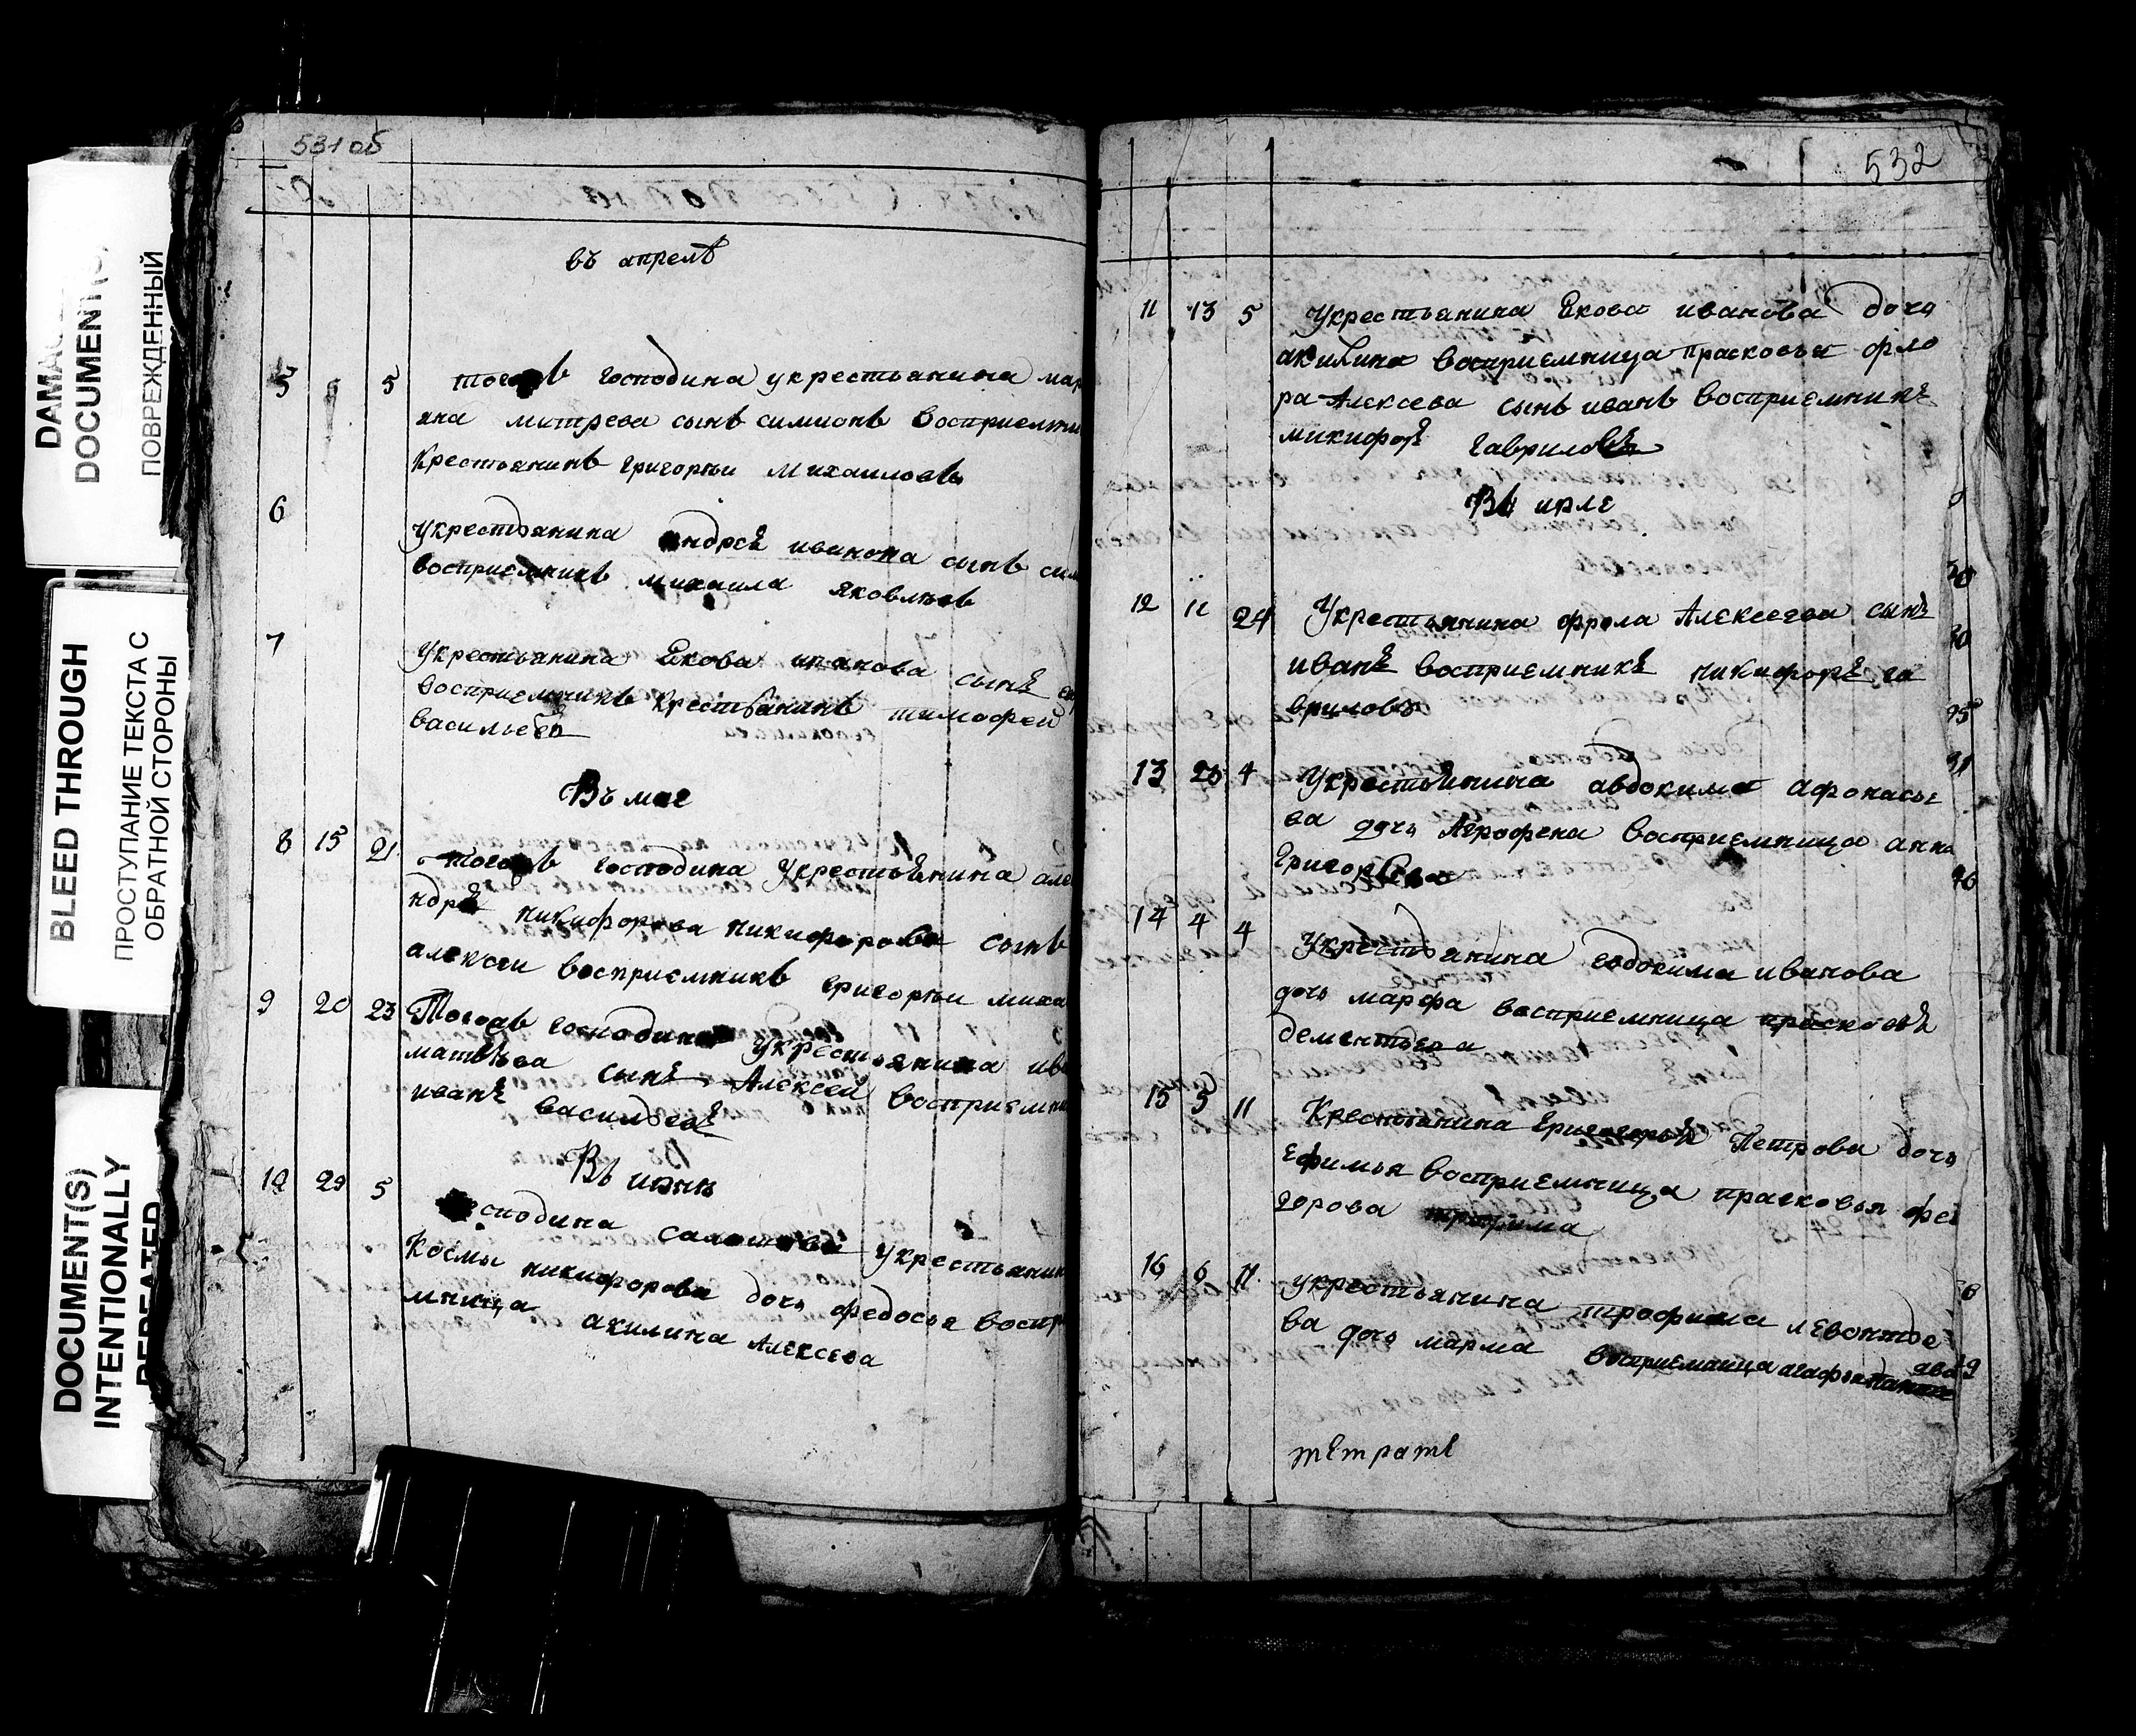 DAMA
DOCUMENT(S)
ПОВРЕЖДЕННЫЙ
BLEED THROUGH
ПРОСТУПАНИЕ ТЕКСТА С
ОБРАТНОЙ СТОРОНЫ
DOCUMENT(S)
INTENTIONALLY
REPEATED
531 об
въ апрелѣ
5 5 5 господина укрестьянина мар
яна митрева сынъ симионъ восприемни
Крестьянинъ григорьи михаиловъ
6 укрестьянина андреѣ иванова сынъ сим
восприемникъ михаила яковлевъ
7 укрестьянина Екова иванова сынъ
восприемникъ крестьянинъ тимофей
васильевъ
Въ мае
8 15 21 тогожъ господина укрестьянина але
ндрѣ никифорова никифорова сынъ
алексеи восприемникъ григорьи миха
9 20 23 Тогожъ господина укрестьянина ива
матвѣва сынъ Алексей восприемни
иванъ васильевъ
Въ июнѣ
10 29 5 господина укрестьянин
Космы никифорова дочь федосья воспр
мница акилина Алексева
532
11 13 5 Укрестьянина Екова иванова дочь
акилина восприемница прасковья фло
ра Алексева сынъ иванъ восприемникъ
микифоръ гавриловъ
Въ июле
12 11 24 Укрестьянина фрола Алексеева сынъ
иванъ восприемникъ никифоръ га
вриловъ
13 23 4 Укрестьянина авдокима афонасье
ва дочь Аграфена восприемница анна
Григорьева
14 4 4 Укрестьянина евдокима иванова
дочь марфа восприемница прасковѣ
дементьева
15 5 11 Крестьянина Петрова дочь
Ефимья восприемница прасковья фе
дорова
16 6 11 укрестьянина трофима левонтье
ва дочь марма восприемница агафья